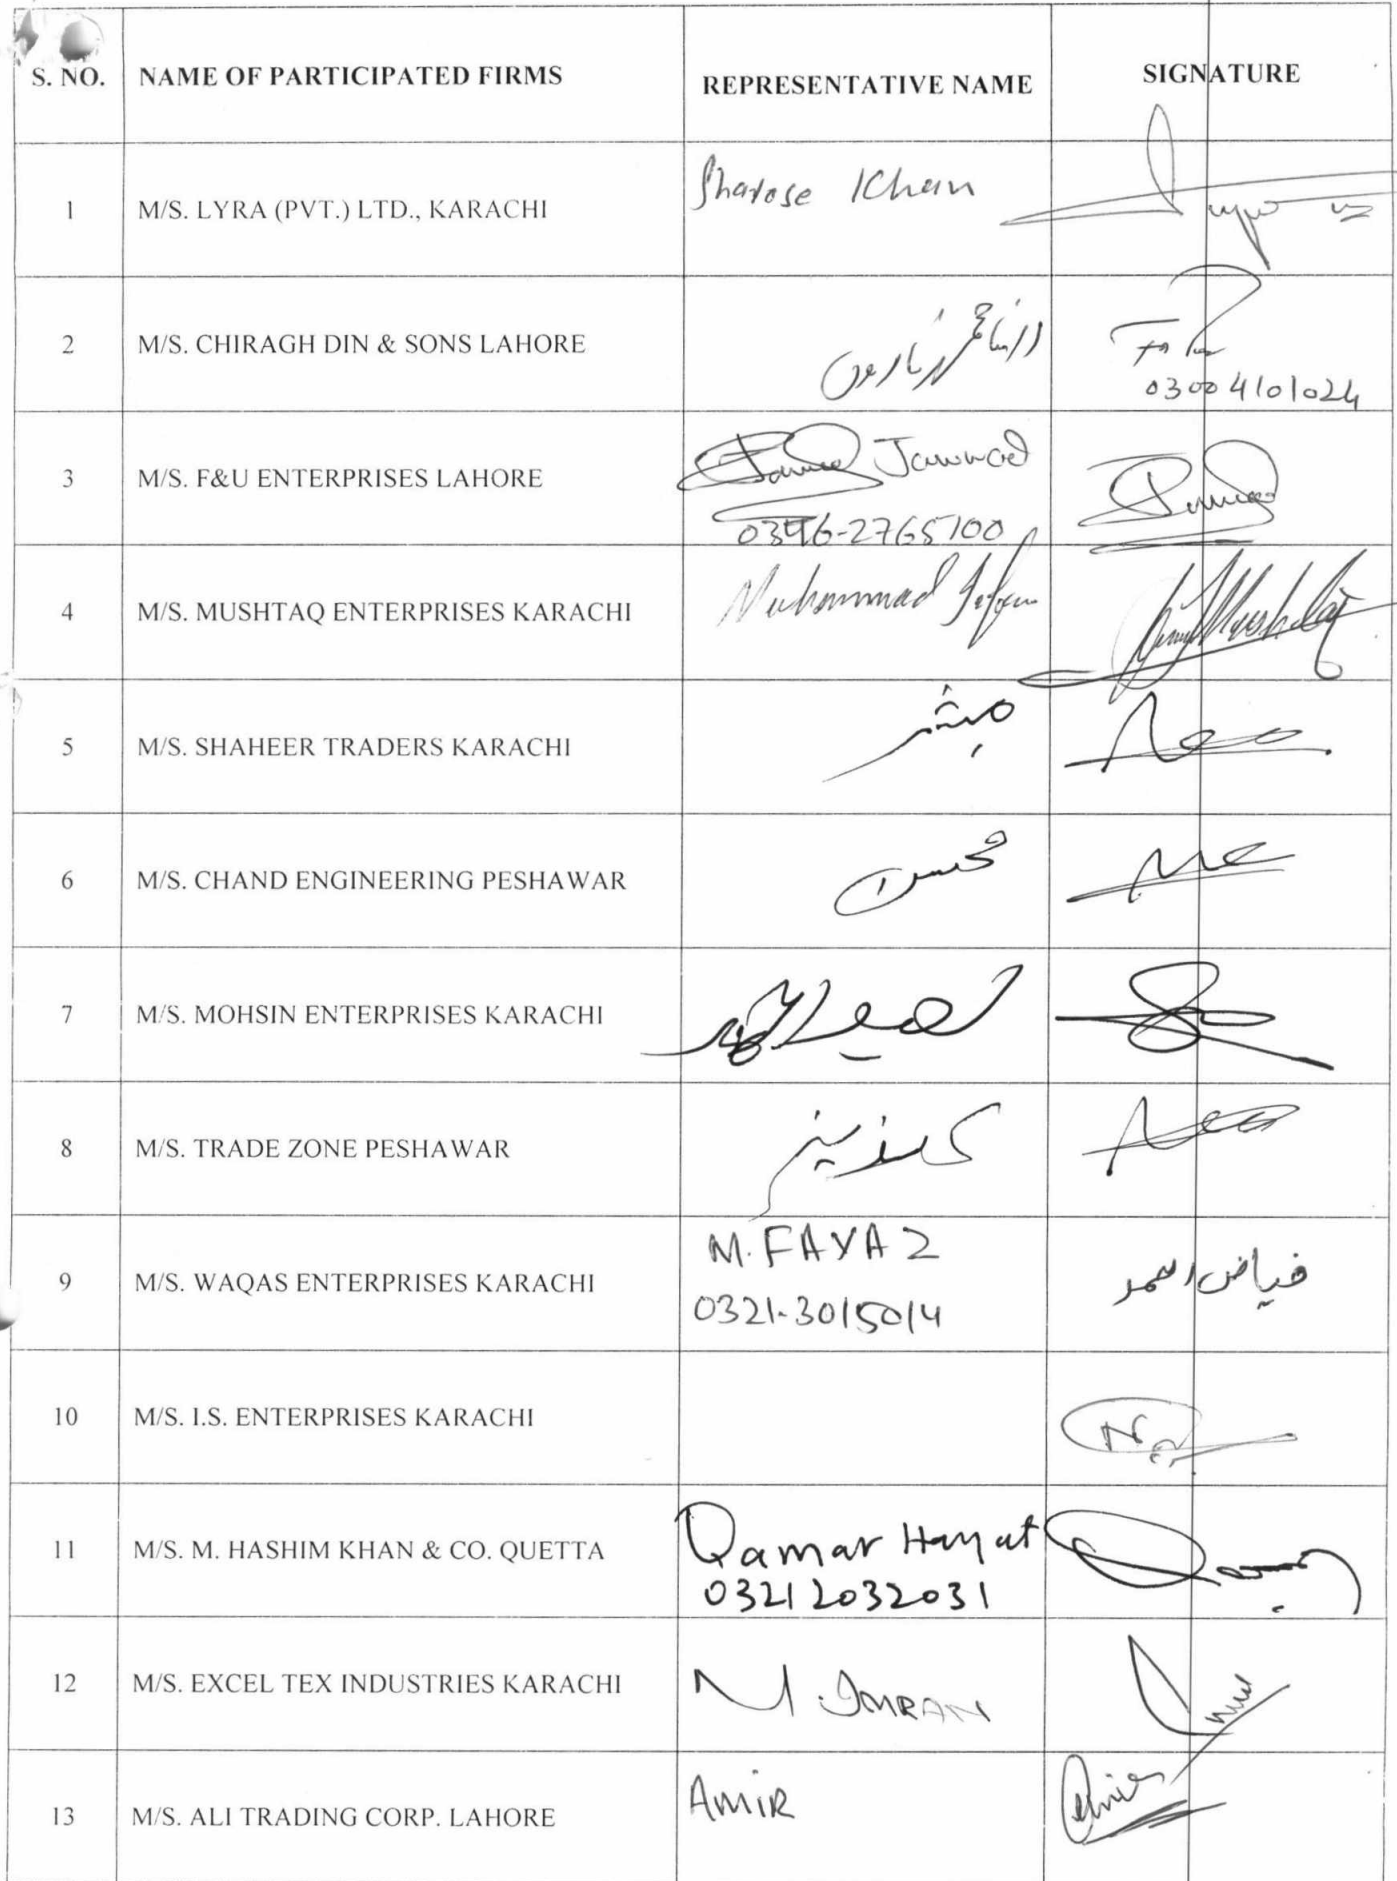 S. NO. NAME OF PARTICIPATED FIRMS REPRESENTATIVE NAME SIGNATURE
1 M/S. LYRA (PVT.) LTD., KARACHI Sharose Khan
2 M/S. CHIRAGH DIN & SONS LAHORE
03004101024
3 M/S. F&U ENTERPRISES LAHORE Jawwad
0346-2765100
4 M/S. MUSHTAQ ENTERPRISES KARACHI Muhammad
5 M/S. SHAHEER TRADERS KARACHI مبشر
6 M/S. CHAND ENGINEERING PESHAWAR محسن
7 M/S. MOHSIN ENTERPRISES KARACHI
8 M/S. TRADE ZONE PESHAWAR
9 M/S. WAQAS ENTERPRISES KARACHI M. FAYAZ فیاض احمد
0321-3015014
10 M/S. I.S. ENTERPRISES KARACHI
11 M/S. M. HASHIM KHAN & CO. QUETTA Qamar Hayat
03212032031
12 M/S. EXCEL TEX INDUSTRIES KARACHI M. IMRAN
13 M/S. ALI TRADING CORP. LAHORE AMIR